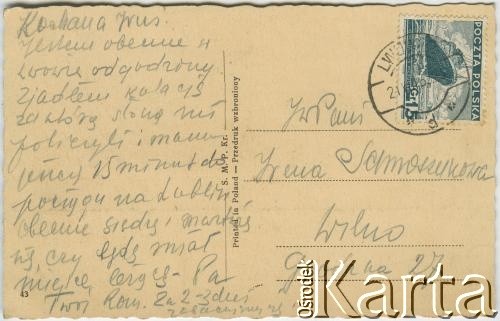 Kochana Iruś.
Jestem obecnie w
Lwowie od godziny
Zjadłem kolację
za którą słono
policzyli i mam
jeszcze 15 minut do
pociągu na Lublin
obecnie siedzę i martwię
się czy będę miał
miejsce leżące. Pa
Twój Rom. Za 2-3 dni
43
S. M. p. Kr.
Printed in Poland — Przedruk wzbroniony
POCZTA POLSKA
LWÓW
W Pani
Irena
Wilno
27
Ośrodek
Karta